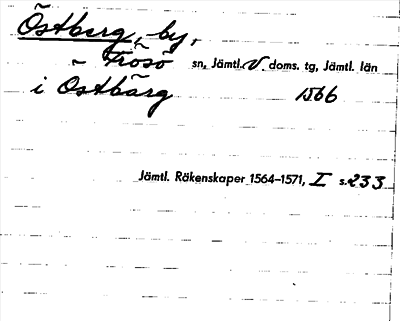 Östberg, by,
Frösö sn, Jämtl. V. doms. tg, Jämtl. län
i Östbärg 1566
Jämtl. Räkenskaper 1564-1571, I s. 233